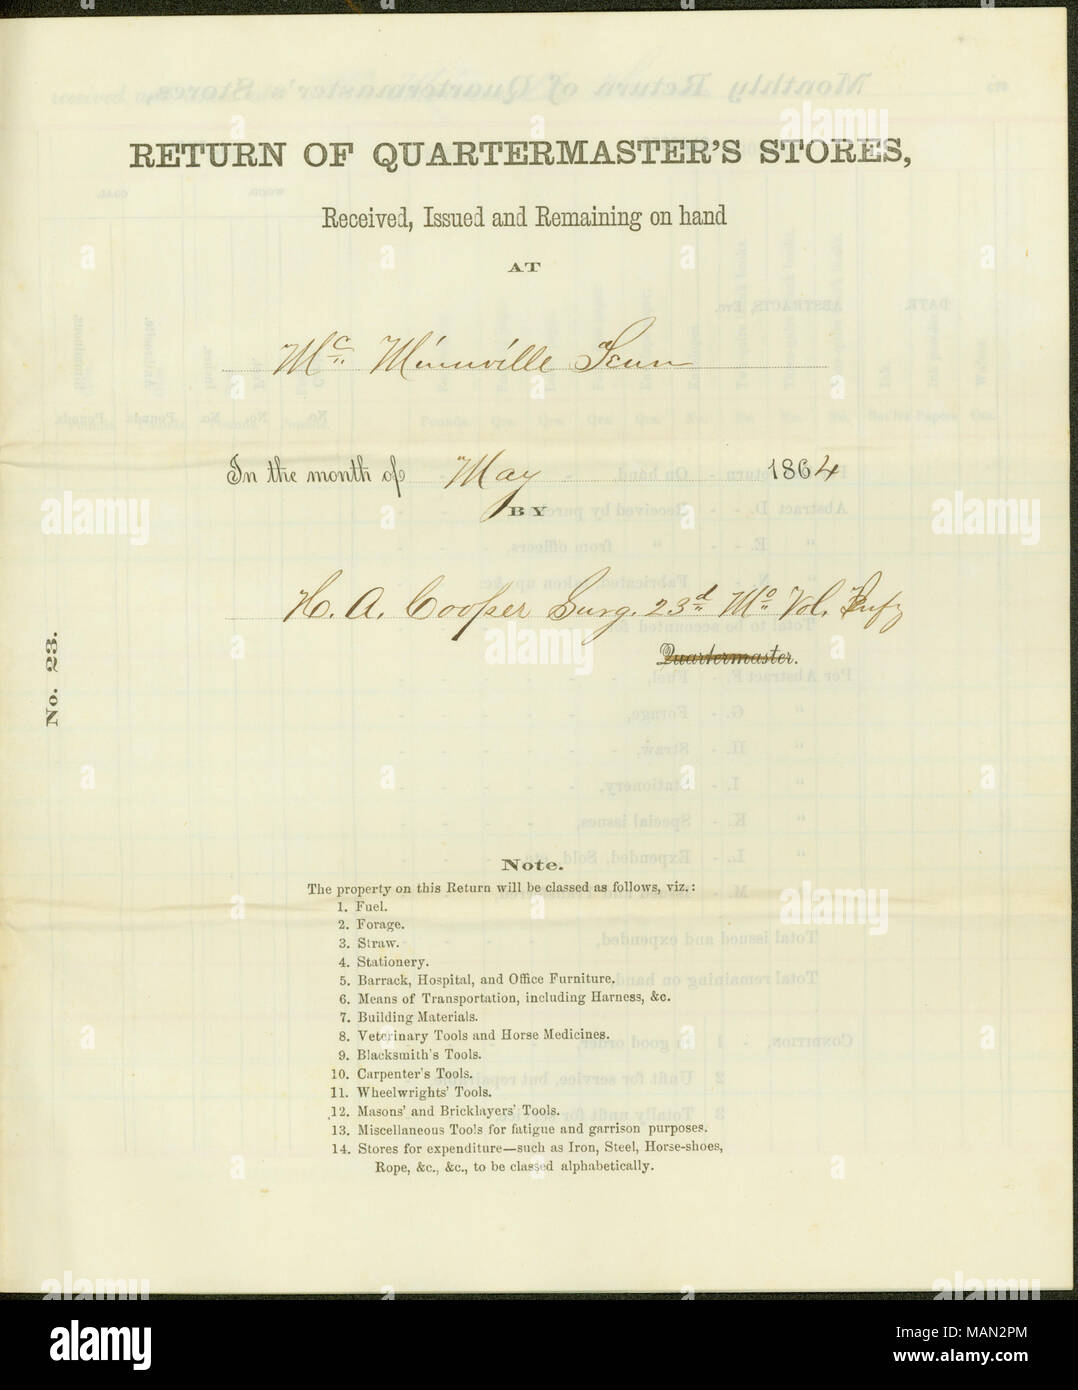 RETURN OF QUARTERMASTER'S STORES,
Received, Issued and Remaining on hand
AT
Mc Minnville Tenn
In the month of May 1864
BY
H. A. Cooper Surg. 23d Mo Vol. Infy
Quartermaster.
No. 23.
Note.
The property on this Return will be classed as follows, viz.:
1. Fuel.
2. Forage.
3. Straw.
4. Stationery.
5. Barrack, Hospital, and Office Furniture.
6. Means of Transportation, including Harness, &c.
7. Building Materials.
8. Veterinary Tools and Horse Medicines.
9. Blacksmith's Tools.
10. Carpenter's Tools.
11. Wheelwrights' Tools.
12. Masons' and Bricklayers' Tools.
13. Miscellaneous Tools for fatigue and garrison purposes.
14. Stores for expenditure—such as Iron, Steel, Horse-shoes,
Rope, &c., &c., to be classed alphabetically.
alamy
Image ID: MAN2PM
www.alamy.com